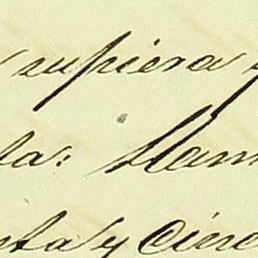 supiera
ta: Ham
nta y cinc